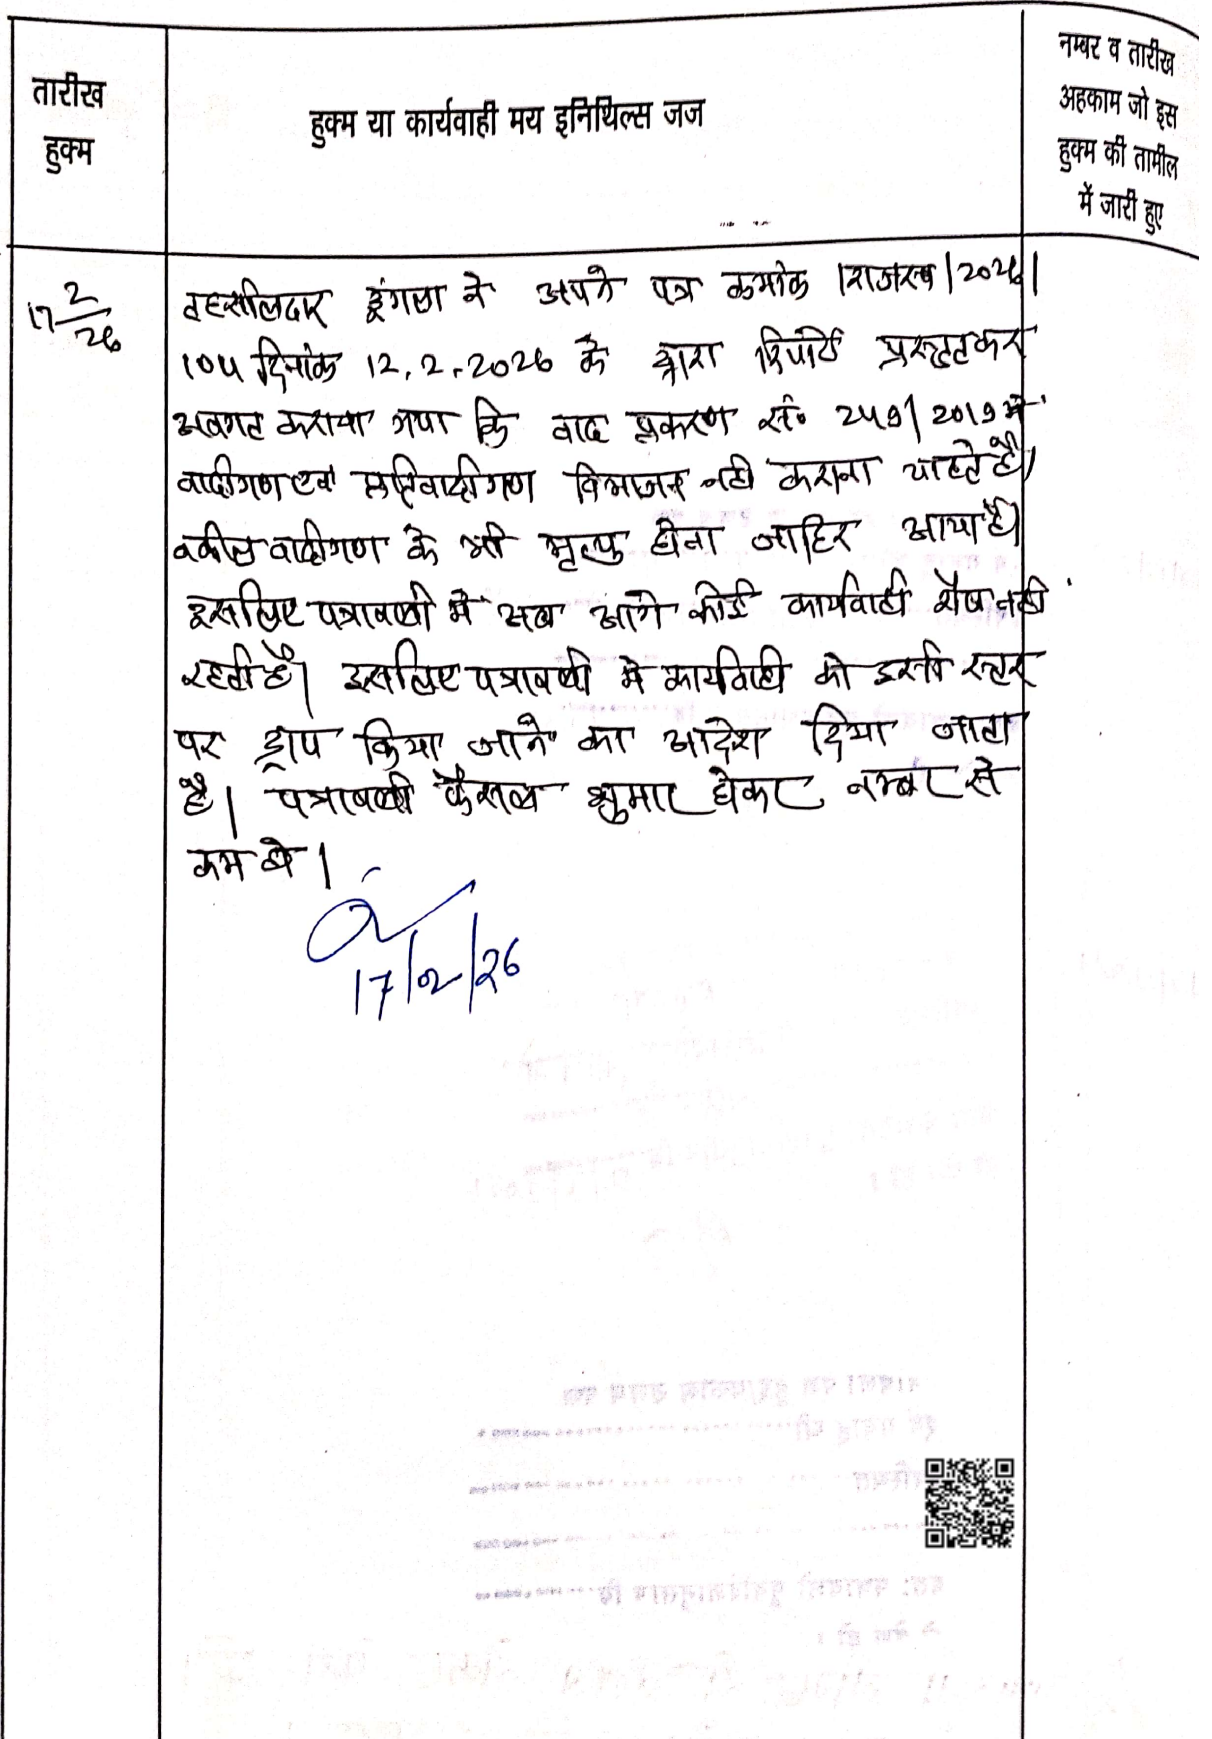 तारीख
हुक्म
हुक्म या कार्यवाही मय इनिथिल्स जज
नम्बर व तारीख
अहकाम जो इस
हुक्म की तामील
में जारी हुए
17 2/26
तहसीलदार डूंगला ने अपने पत्र क्रमांक |राजस्व|2026|
104 दिनांक 12.2.2026 के द्वारा रिपोर्ट प्रस्तुतकर
अवगत कराया गया कि वाद प्रकरण सं० 249/2019 मे
वादीगण एवं प्रतिवादीगण विभाजन नही कराना चाहते है।
वकील वादीगण के भी मृत्यु होना जाहिर आया है।
इसलिए पत्रावली मे अब आगे कोई कार्यवाही शेष नही
रहती है। इसलिए पत्रावली मे कार्यवाही को इसी स्तर
पर ड्राप किया जाने का आदेश दिया जाता
है। पत्रावली फैसल शुमार होकर नम्बर से
कम हो।
17/02/26